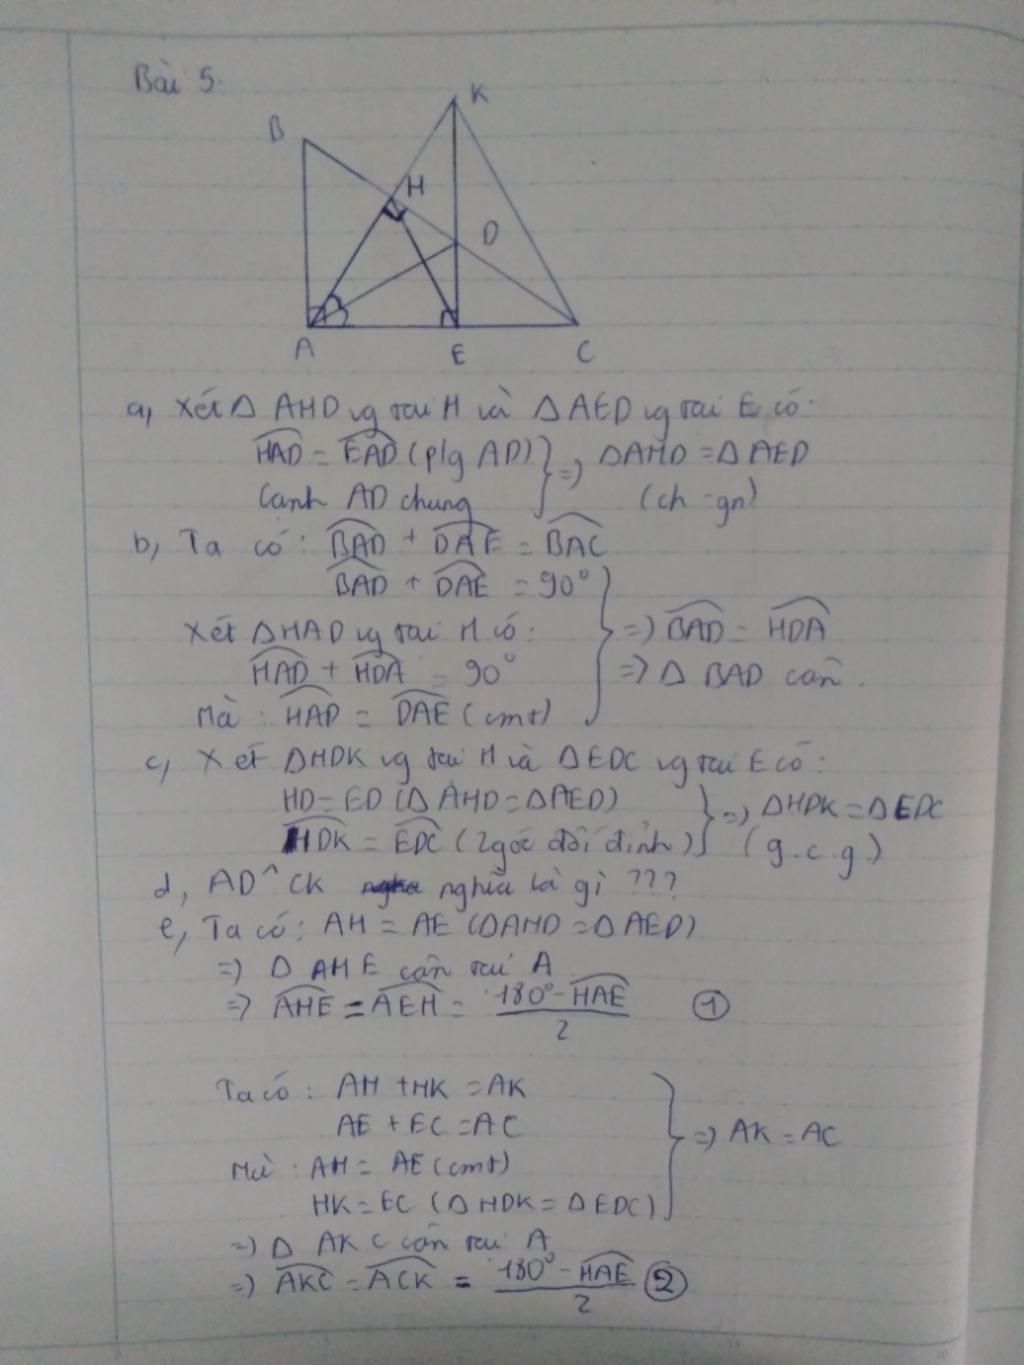 Bài 5.
K
B
H
D
A
E
C
a, Xét Δ AHD vg tại H và Δ AED vg tại E có:
HAD = EAD (p/g AD) } => ΔAHD = ΔAED
Cạnh AD chung (ch - gn)
b, Ta có: BAD + DAE = BAC
BAD + DAE = 90°
Xét ΔHAD vg tại H có: => BAD = HDA
HAD + HDA = 90° => Δ BAD cân.
Mà: HAD = DAE (cmt)
c, Xét ΔHDK vg tại H và ΔEDC vg tại E có:
HD = ED (Δ AHD = ΔAED) } => ΔHDK = ΔEDC
HDK = EDC (2 góc đối đỉnh) (g.c.g)
d, AD^CK nghĩa là gì ???
e, Ta có: AH = AE (ΔAHD = ΔAED)
=> Δ AHE cân tại A
=> AHE = AEH = (180° - HAE)/2 ①
Ta có: AH + HK = AK
AE + EC = AC } => AK = AC
Mà: AH = AE (cmt)
HK = EC (Δ HDK = Δ EDC)
=> Δ AKC cân tại A
=> AKC = ACK = (180° - HAE)/2 ②